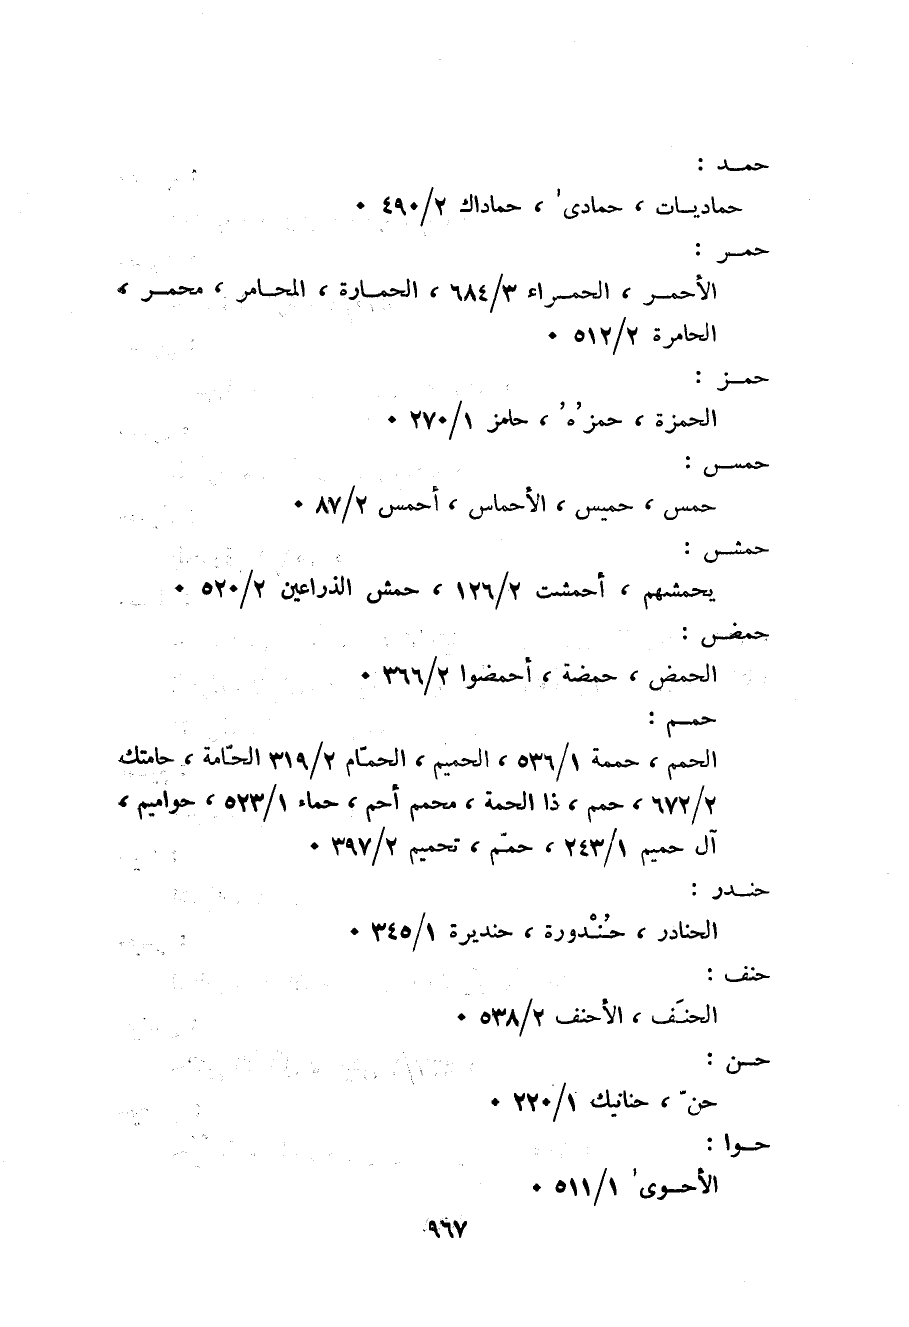 حمـد :
حماديـات ، حمادى' ، حماداك ٤٩٠/٢ ٠
حمـر :
الأحمـر ، الحمـراء ٦٨٤/٣ ، الحمـارة ، المحـامر ، محمـر ،
الحامرة ٥١٢/٢ ٠
حمـز :
الحمزة ، حمز'ه' ، حامز ٢٧٠/١ ٠
حمس :
حمس ، حميس ، الأحماس ، أحمس ٨٧/٢ ٠
حمش :
يحمشهم ، أحمشت ١٢٦/٢ ، حمش الذراعين ٥٢٠/٢ ٠
حمض :
الحمض ، حمضة ، أحمضوا ٣٦٦/٢ ٠
حمـم :
الحمم ، حممة ٥٣٦/١ ، الحميم ، الحمّام ٣١٩/٢ الحـّامة ، حامتك
٦٧٢/٢ ، حمم ، ذا الحمة ، محمم أحم ، حماء ٥٢٣/١ ، حواميم ،
آل حميم ٢٤٣/١ ، حمّم ، تحميم ٣٩٧/٢ ٠
حنـدر :
الحنادر ، حُنْدورة ، حنديرة ٣٤٥/١ ٠
حنف :
الحنَف ، الأحنف ٥٣٨/٢ ٠
حـن :
حنّ ، حنانيك ٢٢٠/١ ٠
حـوا :
الأحـوى' ٥١١/١ ٠
٩٦٧